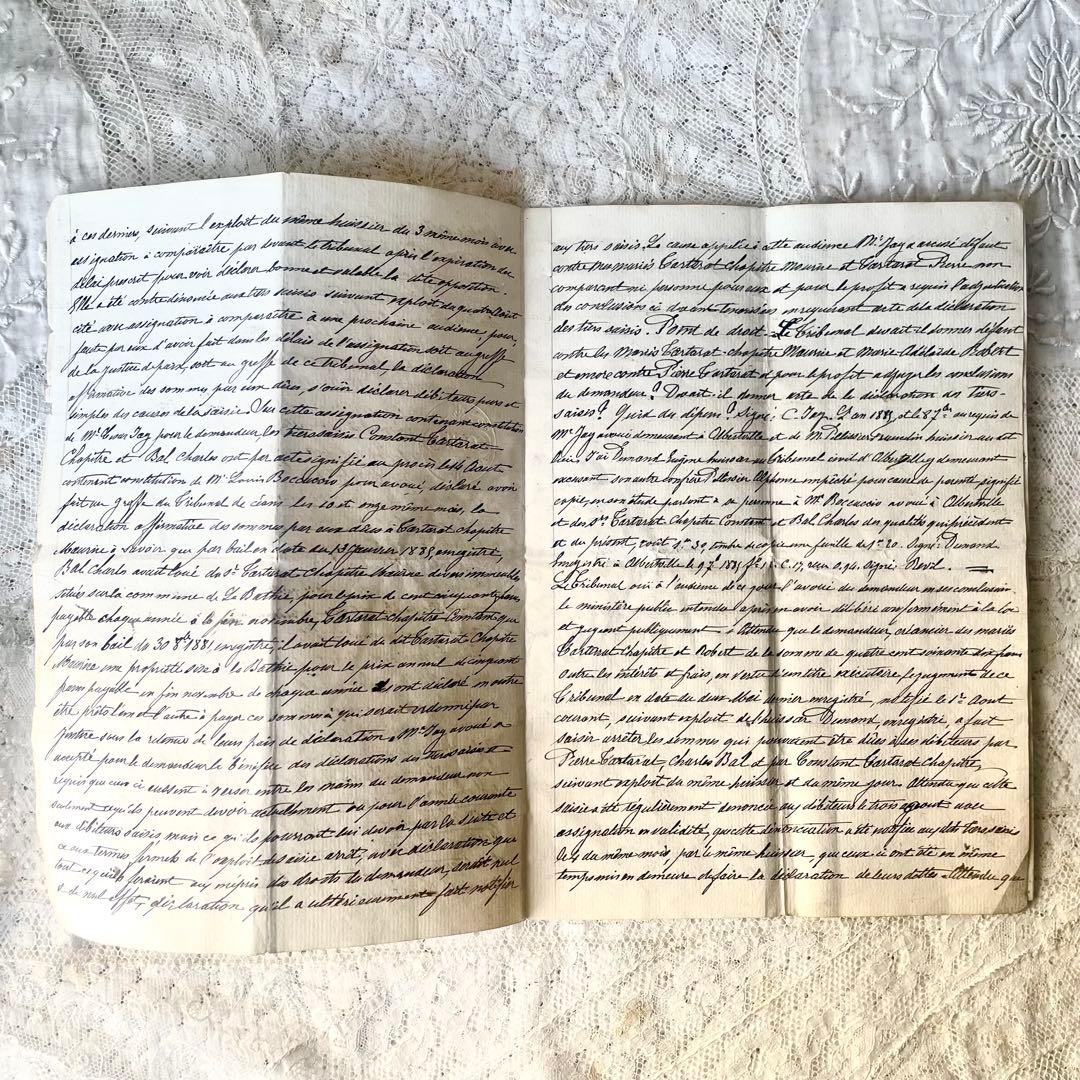 à ces derniers, suivant l'exploit du même huissier du 3 même mois avec
assignation à comparaître par devant le tribunal après l'expiration du
délai prescrit pour voir déclarer bonne et valable la dite opposition.
a été contredénoncée aux tiers saisis suivant exploit du quatre août
cité avec assignation à comparaître à une prochaine audience, pour,
faute par eux d'avoir fait dans les délais de l'assignation soit au greffe
de la justice de paix, soit au greffe de ce tribunal, la déclaration
affirmative des sommes par eux dûes, s'ouïr déclarer débiteurs purs et
simples des causes de la saisie. Sur cette assignation contenant constitution
de Mᵉ Jay pour le demandeur, les tiers saisis Constant Tartarat
Chapitre et Bal Charles ont par acte signifié au procès le août
contenant constitution de Mᵉ Louis Boccaccio pour avoué, déclaré avoir
fait au greffe du Tribunal de céans les 10 et onze même mois, la
déclaration affirmative des sommes par eux dûes à Tartarat chapitre
Maurice à savoir que par bail en date du 13 février 1885, enregistré,
Bal Charles avait loué du Sʳ Tartarat Chapitre Maurice divers immeubles
sitiés sur la commune de La Bathie pour le prix de cent cinquante francs
payable chaque année à la fin novembre, Tartarat chapitre Constant que
par son bail du 30 8ᵇʳᵉ 1881, enregistré, il avait loué du dit Tartarat Chapitre
Maurice une propriété sise à la Bathie pour le prix annuel de cinquante
francs payable en fin novembre de chaque année. Ils ont déclaré en outre
être prêts l'un et l'autre à payer ces sommes à qui serait ordonné par
justice sous la retenue de leurs frais de déclaration. Mᵉ Jay avoué a
accepté pour le demandeur le bénéfice des déclarations des tiers saisis et
requis que ceux ci eussent à verser entre les mains du demandeur non
seulement ce qu'ils peuvent devoir actuellement ou pour l'année courante
aux débiteurs saisis, mais ce qu'ils pourront lui devoir par la suite et
ce aux termes formels de l'exploit de saisie arrêt, avec déclaration que
tout ce qu'ils feraient au mépris des droits du demandeur, serait nul
et de nul effet, déclaration qu'il a ultérieurement fait notifier
aux tiers saisis. La cause appelée à cette audience Mᵉ Jay a accusé défaut
contre les mariés Tartarat Chapitre Maurice et Tartarat Pierre non
comparant ni personne pour eux et pour le profit a requis l'adjudication
des conclusions ci devant énoncées en requérant acte de la déclaration
des tiers saisis. Point de droit. Le Tribunal devait il donner défaut
contre les Mariés Tartarat-chapitre Maurice et Marie Adélaïde Robert
et encore contre Pierre Tartarat et pour le profit adjuger les conclusions
du demandeur? Devait-il donner acte de la déclaration des tiers-
saisis? Quid des dépens? Signé: C. Jay. L'an 1885 et le 8 7ᵇʳᵉ au requis de
Mᵉ Jay avoué demeurant à Albertville et de M. Pellissier huissier au dit
lieu. J'ai Dunand Eugène huissier au Tribunal civil d'Albertville y demeurant
excusant son autre confrère Pellissier Alphonse empêché pour cause de parenté, signifié
copie, en son étude parlant à sa personne à Mᵉ Boccaccio avoué à Albertville
et des Sʳˢ Tartarat Chapitre Constant et Bal Charles des qualités qui précèdent
et du présent, coût 1ᶠ 30, timbre de copie une feuille de 1ᶠ 20. Signé: Dunand.
Enregistré à Albertville le 9 7ᵇʳᵉ 1885 C. 17, reçu 0,94. Signé: Revil.
Le Tribunal ouï à l'audience de ce jour l'avoué du demandeur en ses conclusions
le ministère public entendu, après en avoir délibéré conformément à la loi
et jugeant publiquement. Attendu que le demandeur, créancier des mariés
Tartarat Chapitre et Robert de la somme de quatre cent soixante dix francs
outre les intérêts et frais, en vertu d'un titre exécutoire, le jugement de ce
Tribunal en date du deux Mai dernier enregistré, notifié le 1ᵉʳ Août
courant, suivant exploit de l'huissier Dunand, enregistré, a fait
saisir arrêter les sommes qui pouvaient être dûes à ses débiteurs par
Pierre Tartarat, Charles Bal et par Constant Tartarat Chapitre,
suivant exploit du même huissier et du même jour. Attendu que cette
saisie a été régulièrement dénoncée aux débiteurs le trois août avec
assignation en validité, que cette dénonciation a été notifiée aux dits tiers saisis
le 4 du même mois, par le même huissier, que ceux-ci ont été en même
temps mis en demeure de faire la déclaration de leurs dettes. Attendu que